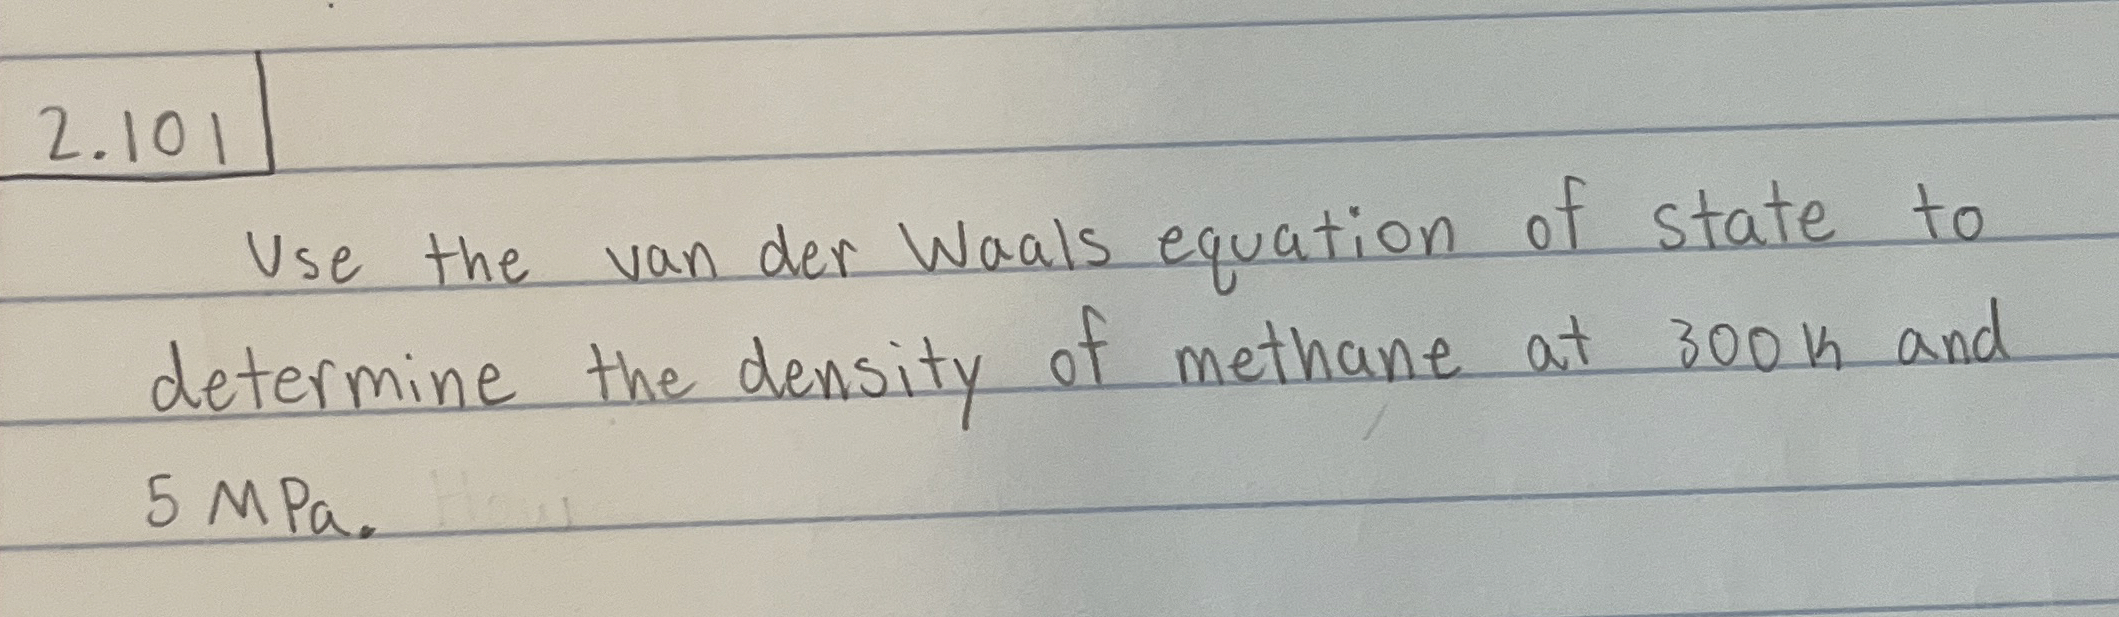 2.101
Use the van der Waals equation of state to
determine the density of methane at 300 K and
5 MPa.